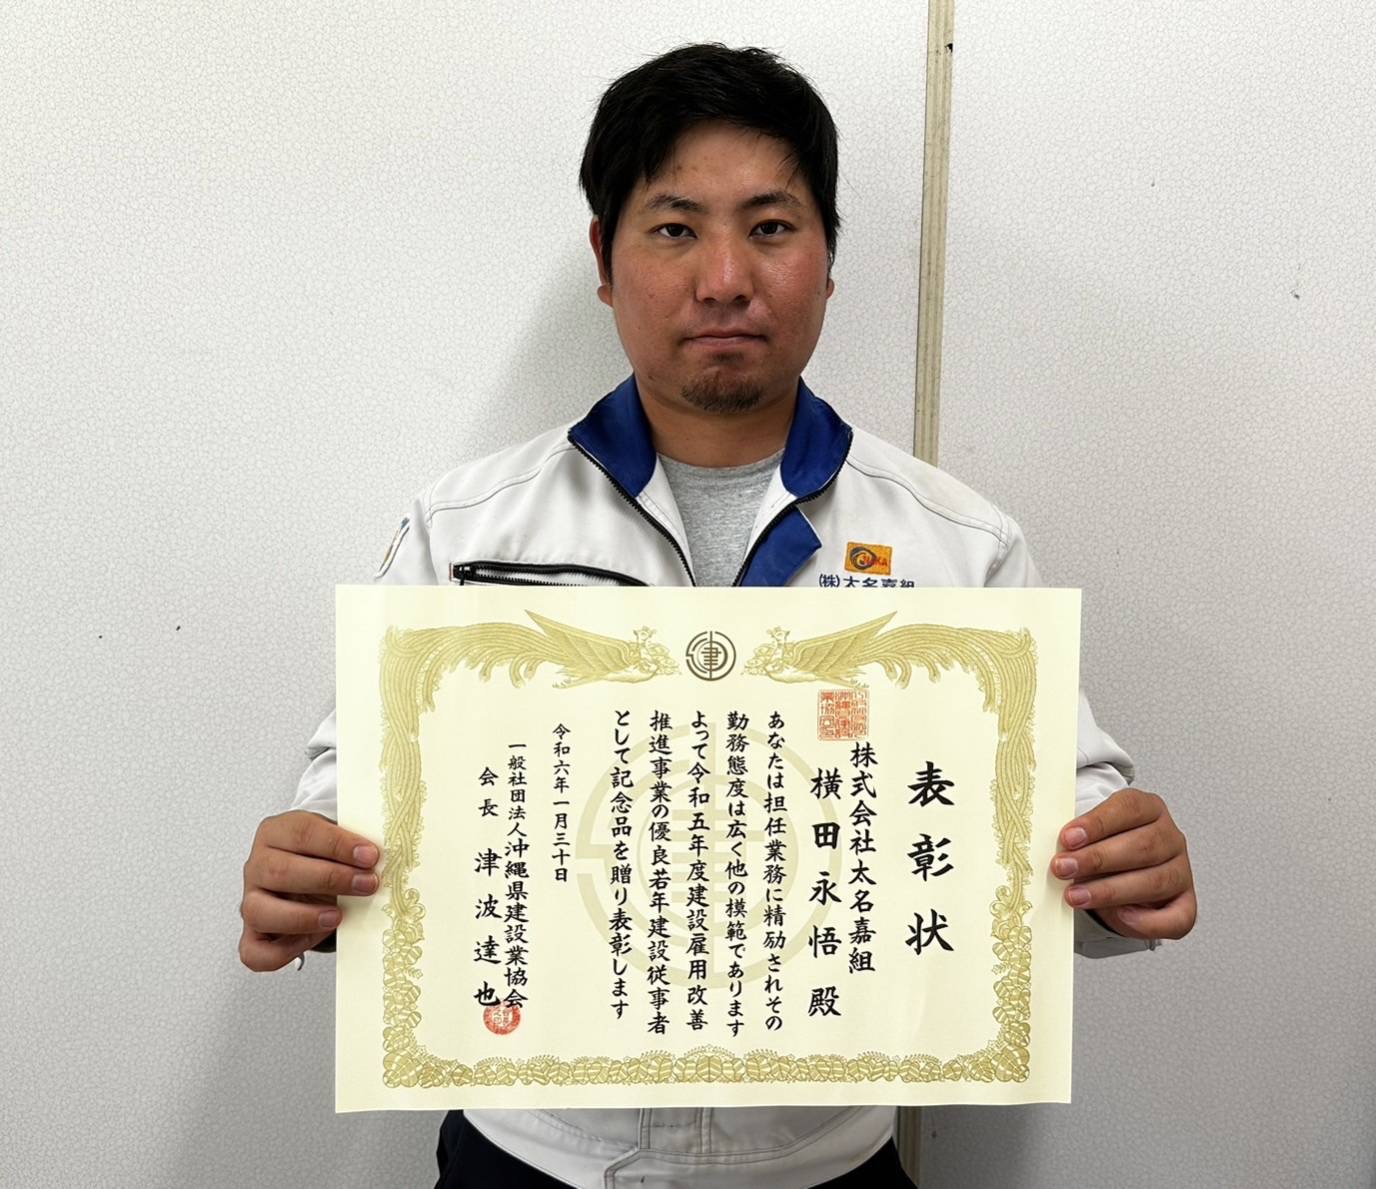 (株)太名嘉組
表彰状
株式会社太名嘉組
横田永悟殿
あなたは担任業務に精励されその
勤務態度は広く他の模範であります
よって令和五年度建設雇用改善
推進事業の優良若年建設従事者
として記念品を贈り表彰します
令和六年一月三十日
一般社団法人沖縄県建設業協会
会長 津波達也